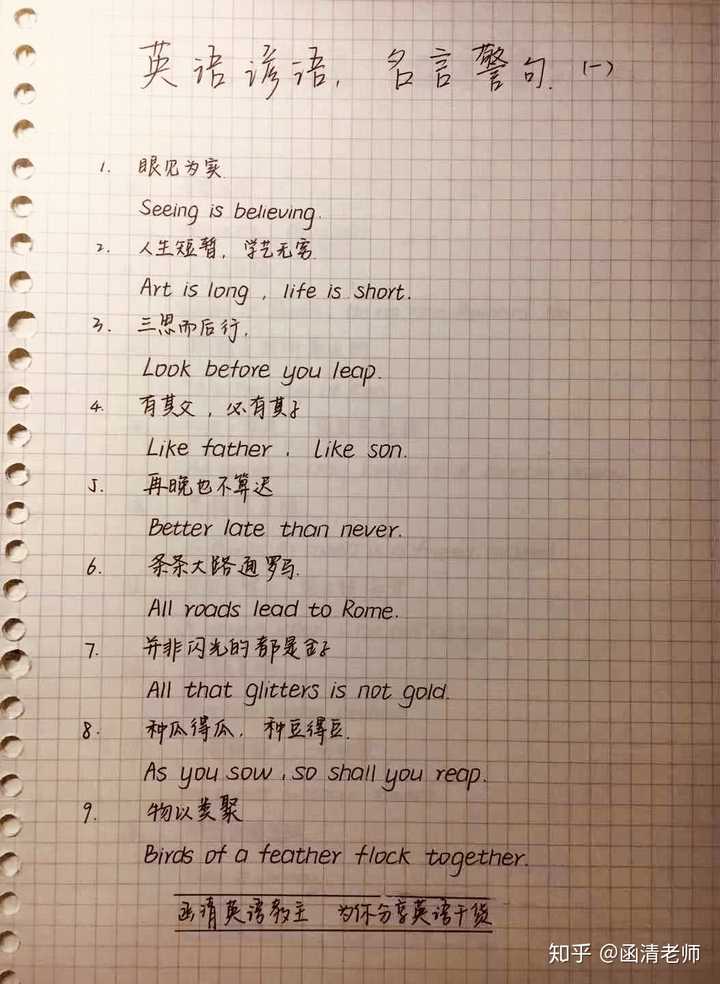 英语谚语，名言警句.（一）
1. 眼见为实.
Seeing is believing.
2. 人生短暂，学艺无穷.
Art is long , life is short.
3. 三思而后行.
Look before you leap.
4. 有其父，必有其子
Like father , like son.
5. 再晚也不算迟
Better late than never.
6. 条条大路通罗马.
All roads lead to Rome.
7. 并非闪光的都是金子
All that glitters is not gold.
8. 种瓜得瓜，种豆得豆.
As you sow , so shall you reap.
9. 物以类聚
Birds of a feather flock together.
函清英语教主 为你分享英语干货
知乎 @函清老师